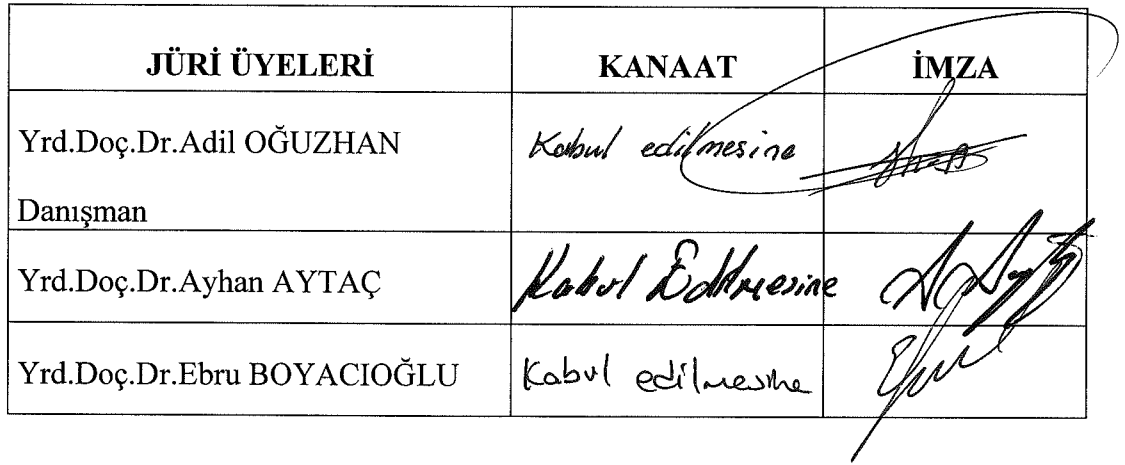 JÜRİ ÜYELERİ KANAAT İMZA
Yrd.Doç.Dr.Adil OĞUZHAN Kabul edilmesine
Danışman
Yrd.Doç.Dr.Ayhan AYTAÇ Kabul Edilmesine
Yrd.Doç.Dr.Ebru BOYACIOĞLU Kabul edilmesine